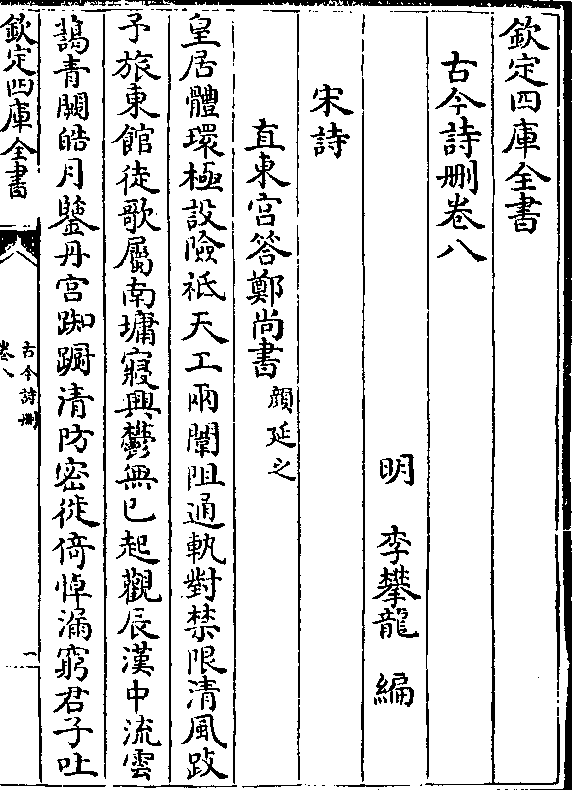 欽定四庫全書
古今詩刪卷八
明 李攀龍 編
宋詩
直東宮答鄭尚書 顔延之
皇居體環極設險祗天工兩闈阻通軌對禁限清風跂
予旅東館徒歌屬南墉寢興鬱無已起觀辰漢中流雲
藹青闕皓月鑒丹宮踟躕清防密徙倚悼漏窮君子吐
欽定四庫全書
古今詩刪
卷八
一